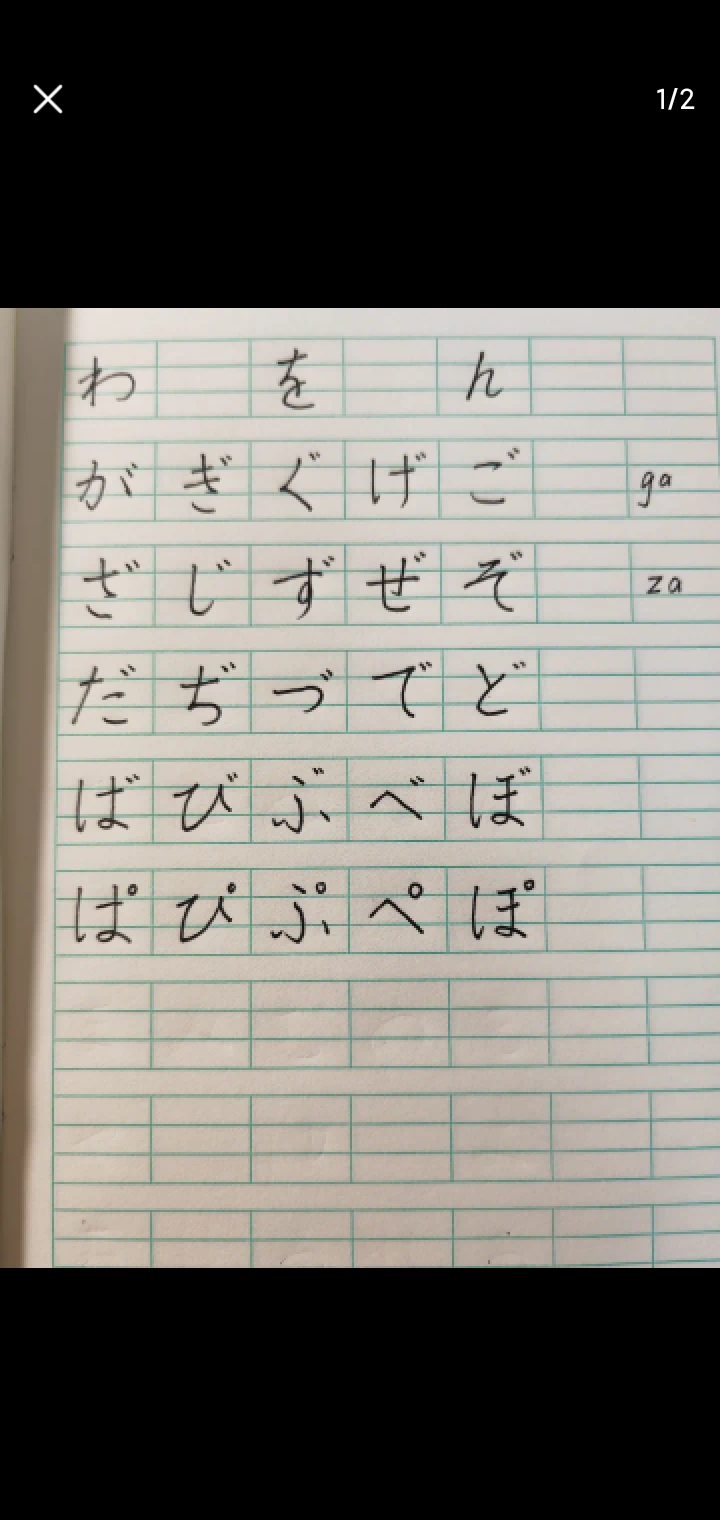 1/2
わ を ん
が ぎ ぐ げ ご ga
ざ じ ず ぜ ぞ za
だ ぢ づ で ど
ば び ぶ べ ぼ
ぱ ぴ ぷ ぺ ぽ